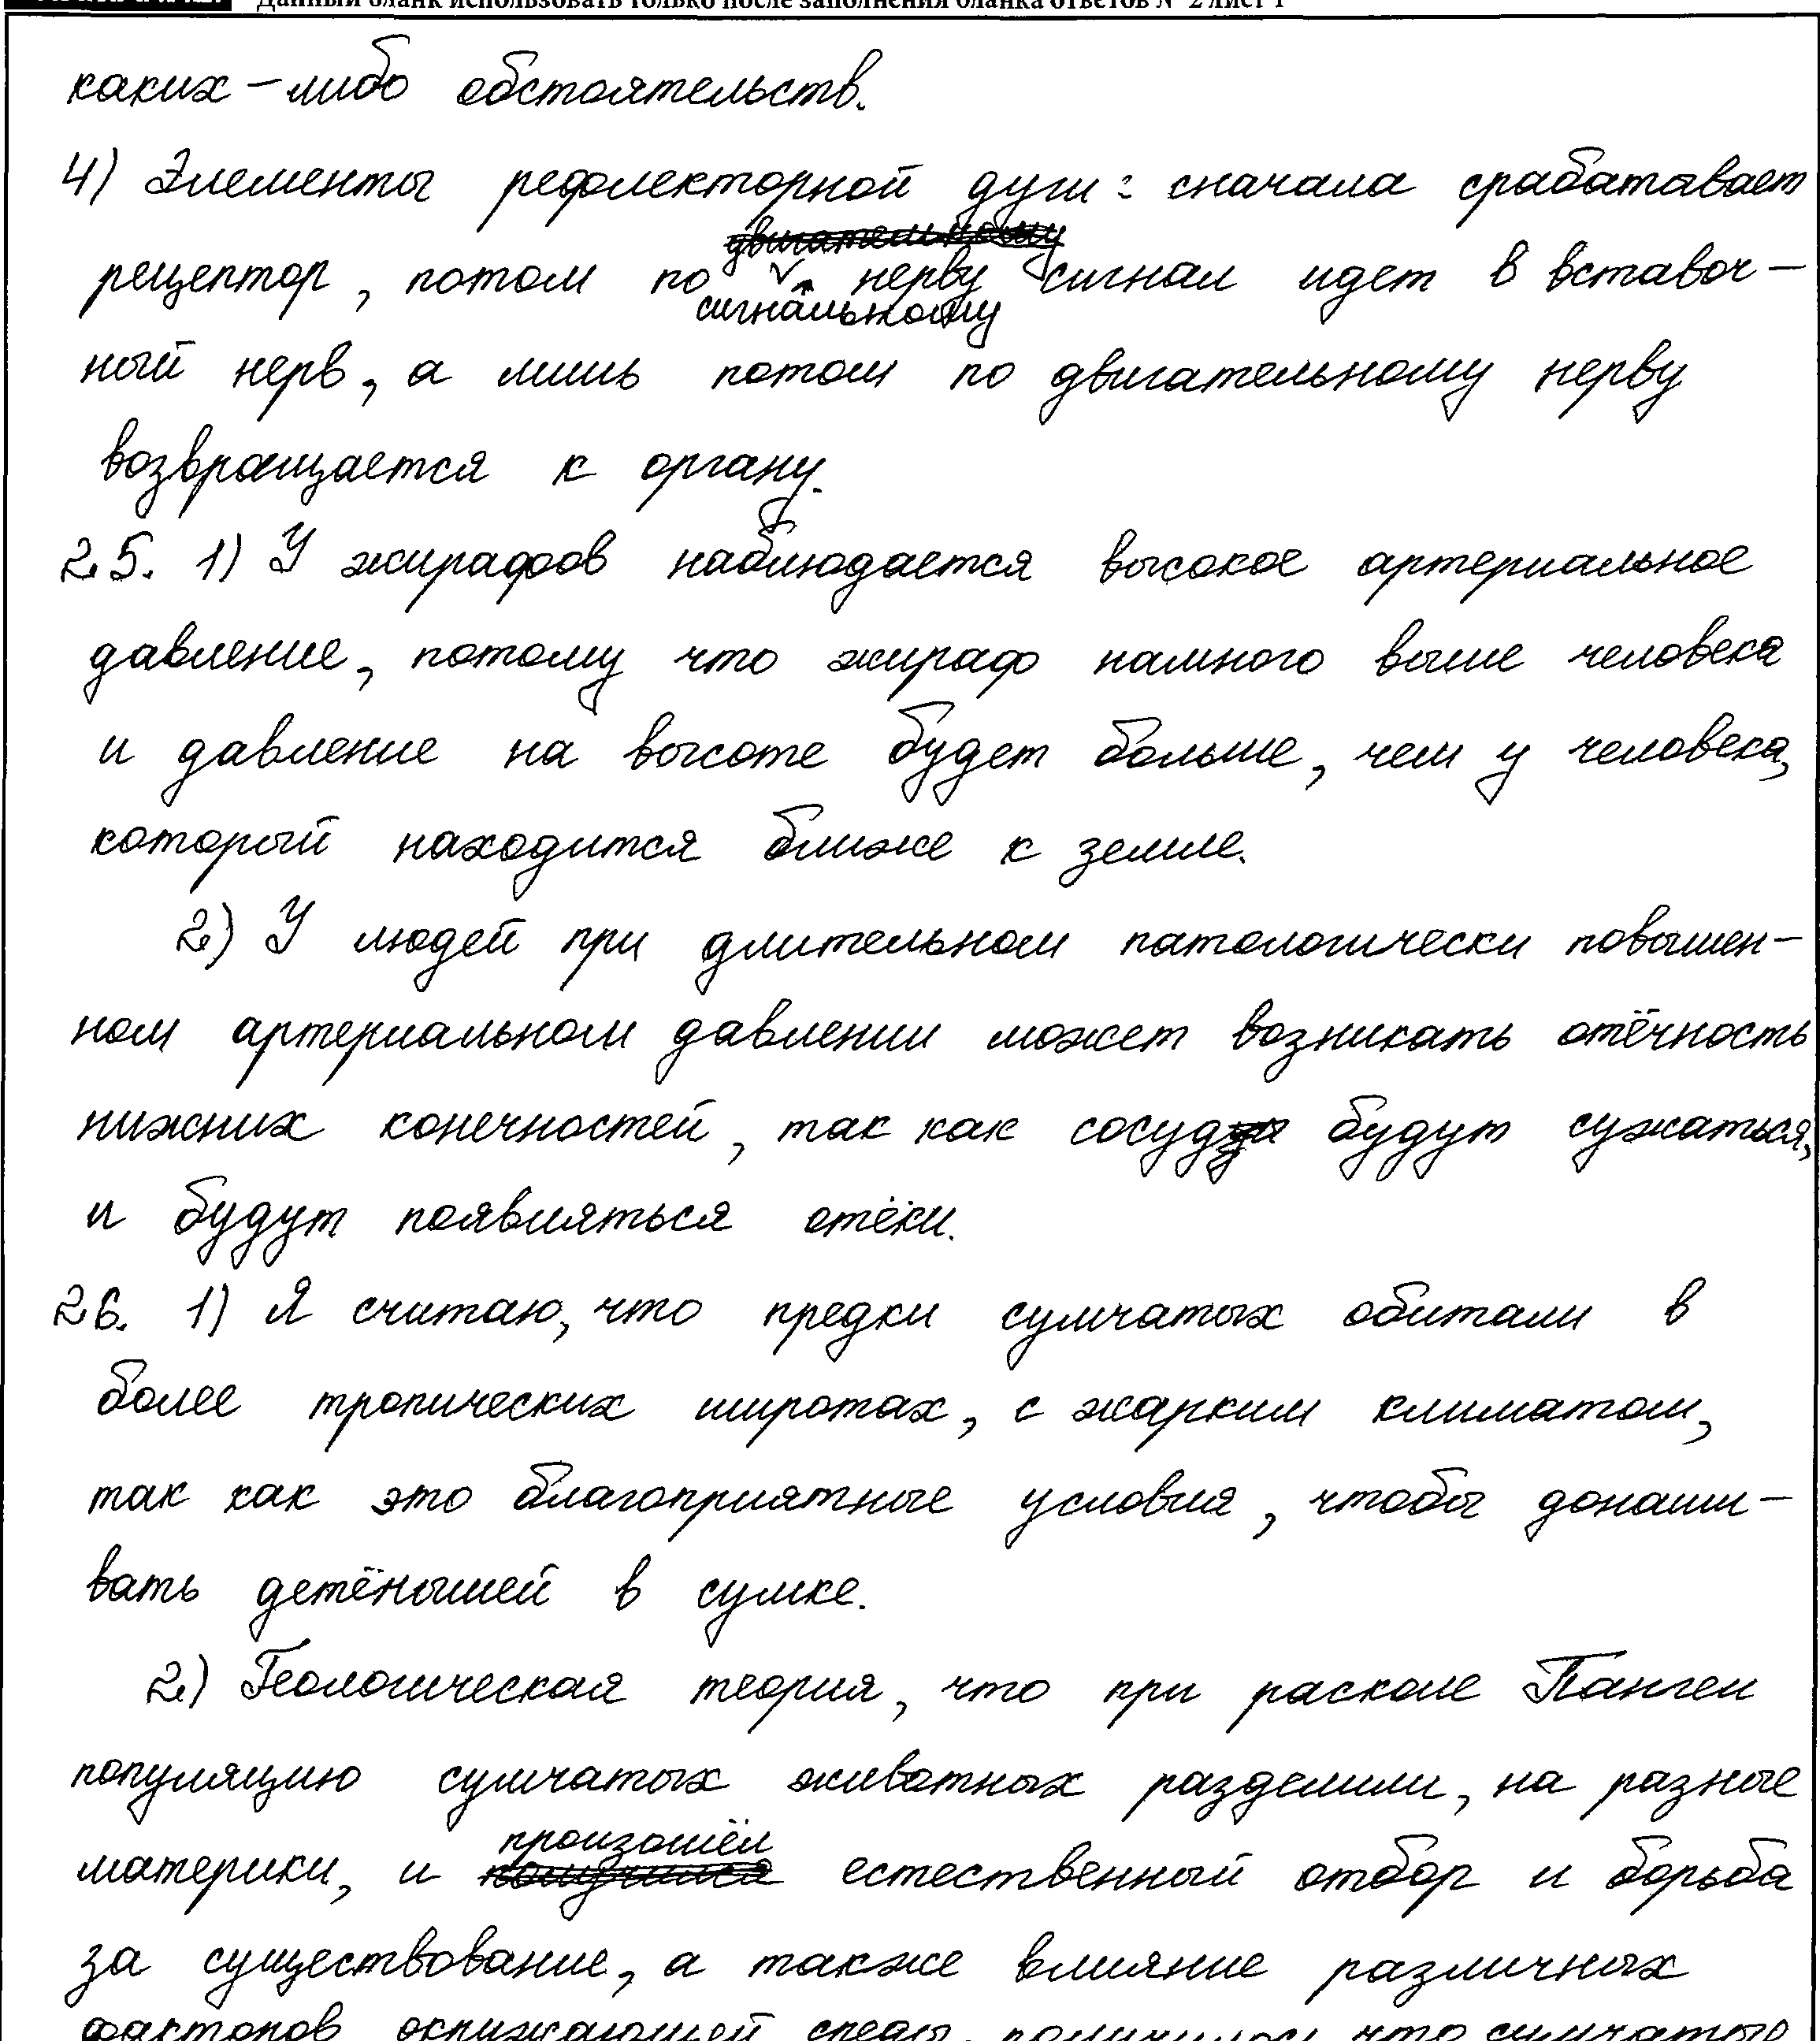 Данный бланк использовать только после заполнения бланка ответов № 2 лист 1
каких-либо обстоятельств.
4) Элементы рефлекторной дуги: сначала срабатавает
двигательному
рецептор, потом по нерву сигнал идет в вставоч-
сигнальному
ный нерв, а лишь потом по двигательному нерву
возвращается к органу.
25. 1) У жирафов наблюдается высокое артериальное
давление, потому что жираф намного выше человека
и давление на высоте будет больше, чем у человека,
который находится ближе к земле.
2) У людей при длительном патологически повышен-
ном артериальном давлении может возникать отёчность
нижних конечностей, так как сосуды будут сужаться,
и будут появляться отёки.
26. 1) Я считаю, что предки сумчатых обитали в
более тропических широтах, с жарким климатом,
так как это благоприятные условия, чтобы донаши-
вать детёнышей в сумке.
2) Геологическая теория, что при расколе Пангеи
популяцию сумчатых животных разделили, на разные
произошёл
материки, и естественный отбор и борьба
за существование, а также влияние различных
факторов окружающей среды, что сумчатые